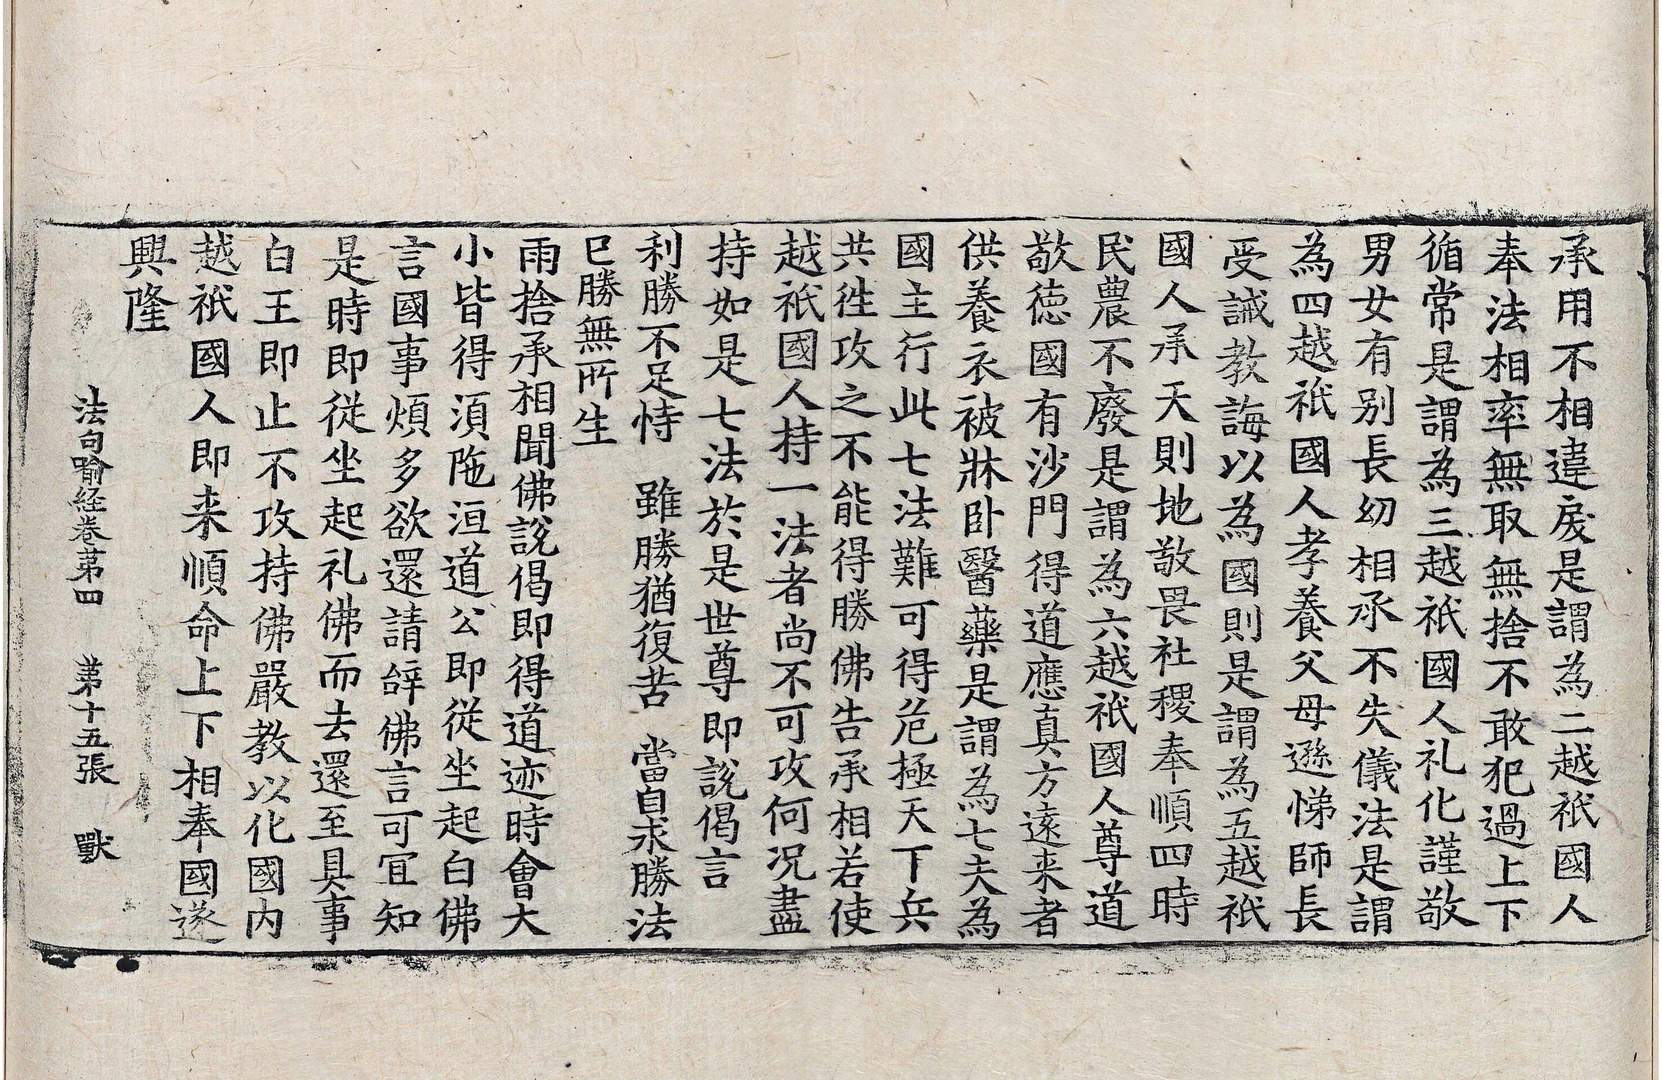 承用不相違戾是謂為二越祇國人
奉法相率無取無捨不敢犯過上下
循常是謂為三越祇國人礼化謹敬
男女有別長幼相承不失儀法是謂
為四越祇國人孝養父母遜悌師長
受誡教誨以為國則是謂為五越祇
國人承天則地敬畏社稷奉順四時
民農不廢是謂為六越祇國人尊道
敬德國有沙門得道應真方遠来者
供養衣被牀卧醫藥是謂為七夫為
國主行此七法難可得危極天下兵
共徃攻之不能得勝佛告承相若使
越祇國人持一法者尚不可攻何况盡
持如是七法於是世尊即說偈言
利勝不足恃　雖勝猶復苦　當自求勝法
已勝無所生
雨捨承相聞佛說偈即得道迹時會大
小皆得須陁洹道公即從坐起白佛
言國事煩多欲還請辝佛言可冝知
是時即從坐起礼佛而去還至具事
白王即止不攻持佛嚴教以化國内
越祇國人即来順命上下相奉國遂
興隆
法句喻経卷苐四　苐十五張　獸